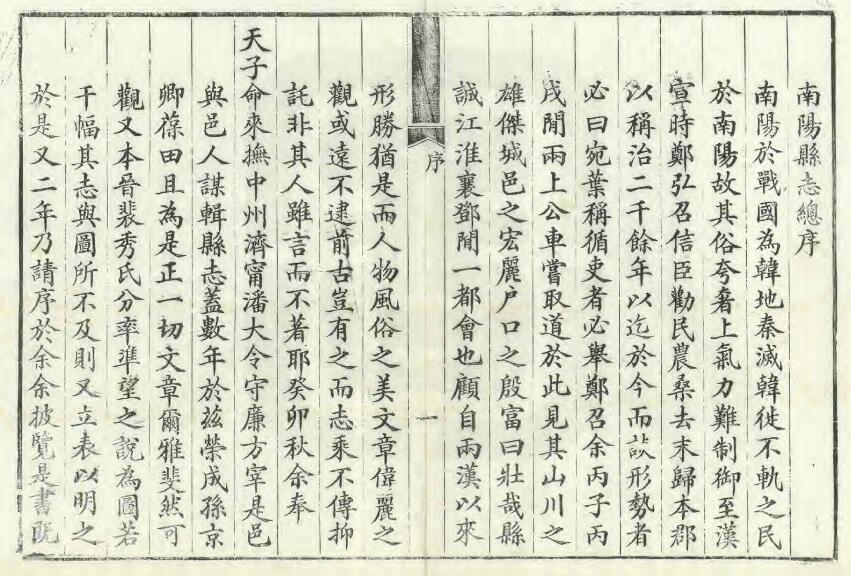 南陽縣志總序
南陽於戰國為韓地秦滅韓徙不軌之民
於南陽故其俗夸奢上氣力難制御至漢
宣時鄭弘召信臣勸民農桑去末歸本郡
以稱治二千餘年以迄於今而談形勢者
必曰宛葉稱循吏者必舉鄭召余丙子丙
戌間兩上公車嘗取道於此見其山川之
雄傑城邑之宏麗户口之殷富曰壯哉縣
誠江淮襄鄧間一都會也顧自兩漢以來
序
一
形勝猶是而人物風俗之美文章偉麗之
觀或遠不逮前古豈有之而志乘不傳抑
託非其人雖言而不著耶癸卯秋余奉
天子命來撫中州濟甯潘大令守廉方宰是邑
與邑人謀輯縣志蓋數年於兹榮成孫京
卿葆田且為是正一切文章爾雅斐然可
觀又本晉裴秀氏分率準望之說為圖若
干幅其志與圖所不及則又立表以明之
於是又二年乃請序於余余披覽是書既